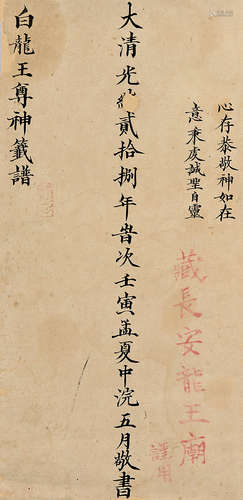 心存恭敬神如在
意秉虔誠聖自靈
藏長安龍王廟
謹用
大清光緒貳拾捌年歲次壬寅孟夏中浣五月敬書
白龍王尊神籤譜